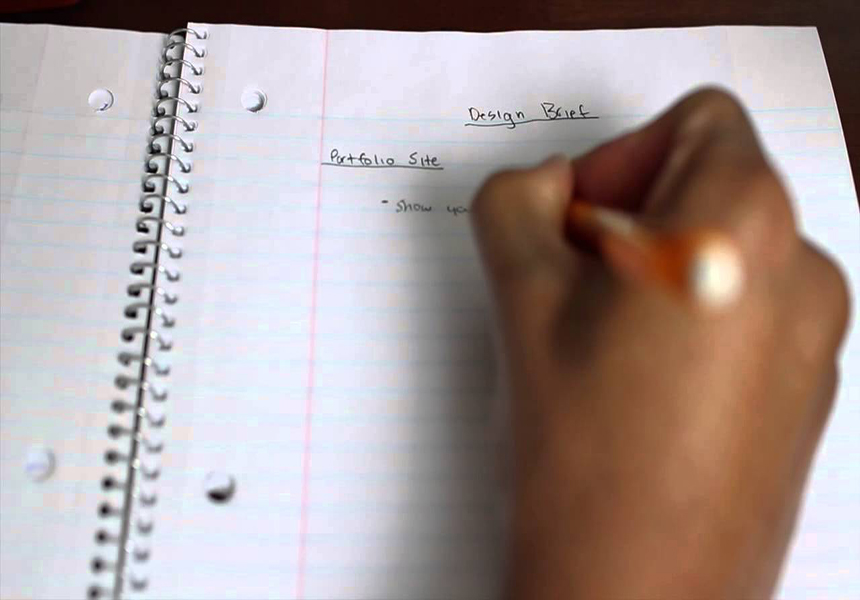 Design Brief
Portfolio Site
- Show